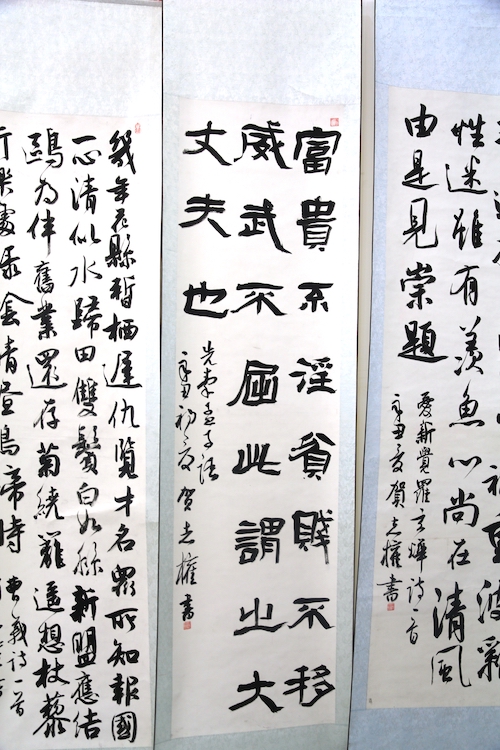 性迷雖有羨魚心尚在清風
由是見崇題
愛新覺羅玄燁詩一首
辛丑夏賀志權書
富貴不淫貧賤不移
威武不屈此謂之大
丈夫也
先秦孟子語
辛丑初夏賀志權書
幾年花縣暫栖遲仇覽才名眾所知報國
一心清似水歸田雙鬢白如絲新盟應結
鷗為伴舊業還存菊繞籬遥想杖藜
行樂處清晝鳥啼時
詩一首